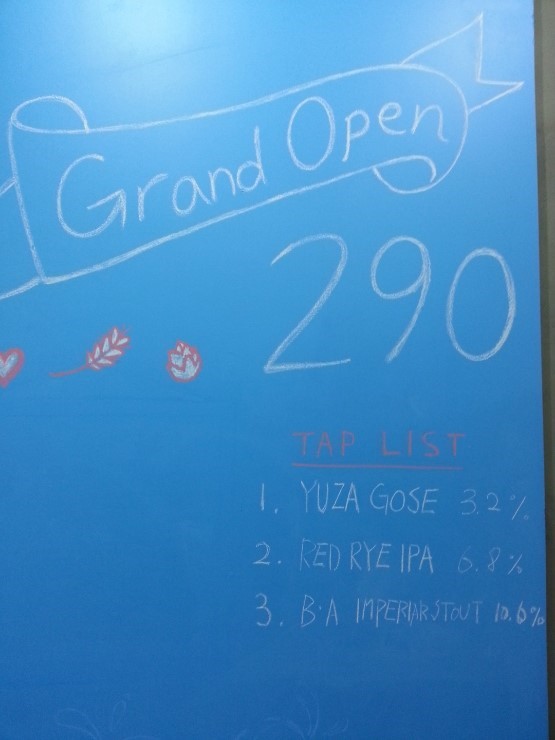 Grand Open
290
TAP LIST
1. YUZA GOSE 3.2%
2. RED RYE IPA 6.8%
3. B·A IMPERIARSTOUT 10.6%